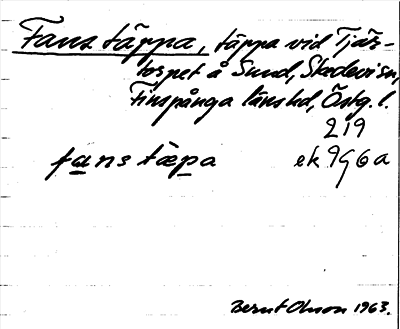 Fans täppa, täppa vid Tjär-
torpet å Sund, Skedevi sn,
Finspånga länshd, Östg. l.
219
fans täpa ek 9g6a
Bernt Olsson 1963.